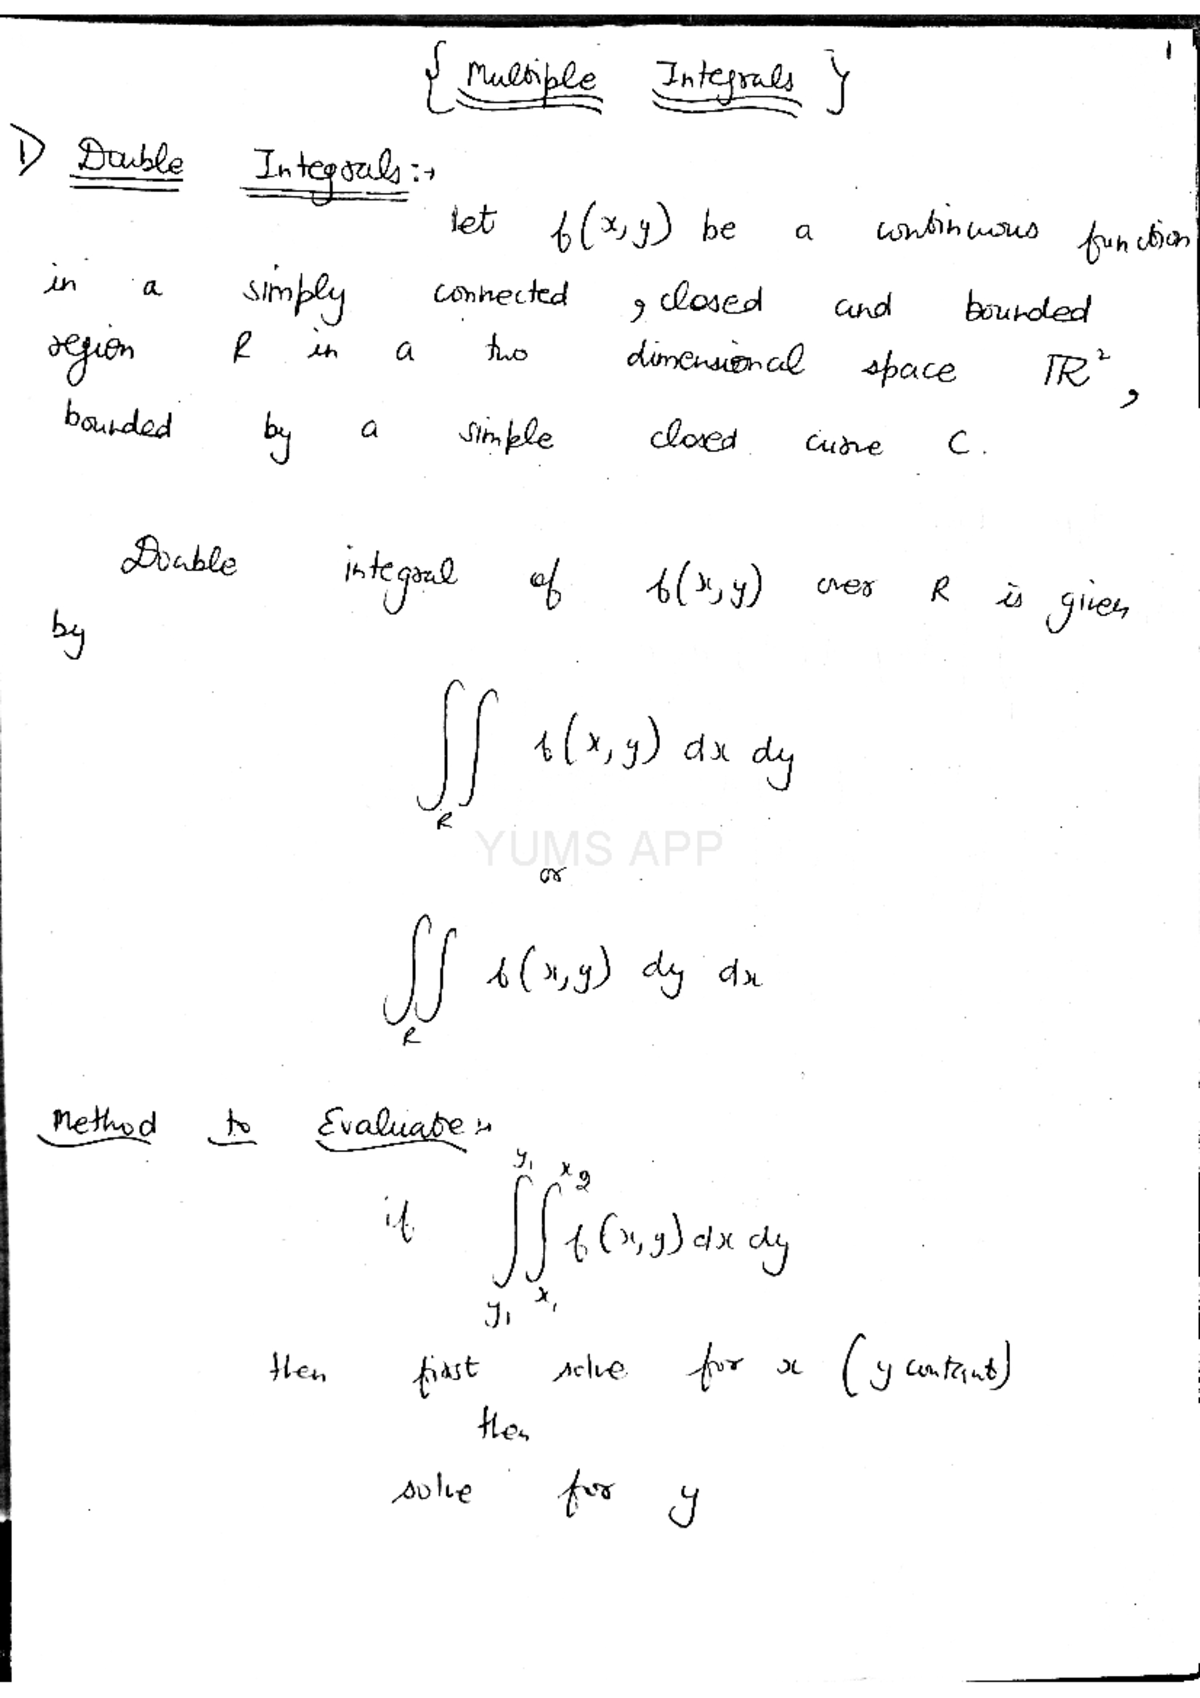 1
{ Multiple Integrals }
1) Double Integrals :→
let f(x, y) be a continuous function
in a simply connected , closed and bounded
region R in a two dimensional space ℝ² ,
bounded by a simple closed curve C .
Double integral of f(x, y) over R is given
by
∬_R f(x, y) dx dy
YUMS APP
or
∬_R f(x, y) dy dx
Method to Evaluate :→
if ∫_{y₁}^{y₁} ∫_{x₁}^{x₂} f(x, y) dx dy
then first solve for x (y constant)
then
solve for y